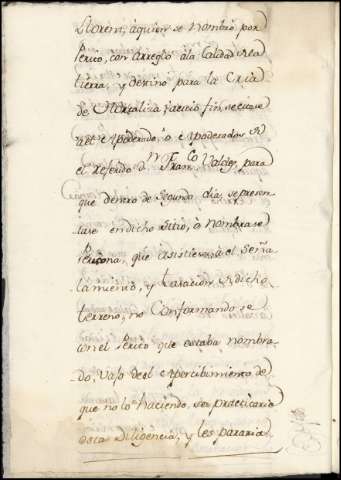 Lloreni, aquien se nombró por
Perito, con arreglo ála Calidad dela
tierra, y destino para la Cria
de Hortaliza; acuio fin, se citase
al Apoderado, ò Apoderados de
el referido Dn. Franco. Valdes, para
que dentro de Segundo dia, se presen
tase en dicho Sitio, ò nombrase
Persona, que asistiera á el Seña
lamiento, y tasacion de dicho
terreno, no Conformandose
con el Perito que estaba nombra
do, vajo de el Apercibimiento de
que no lo haciendo, se practicaria
esta Diligencia, y les pararia